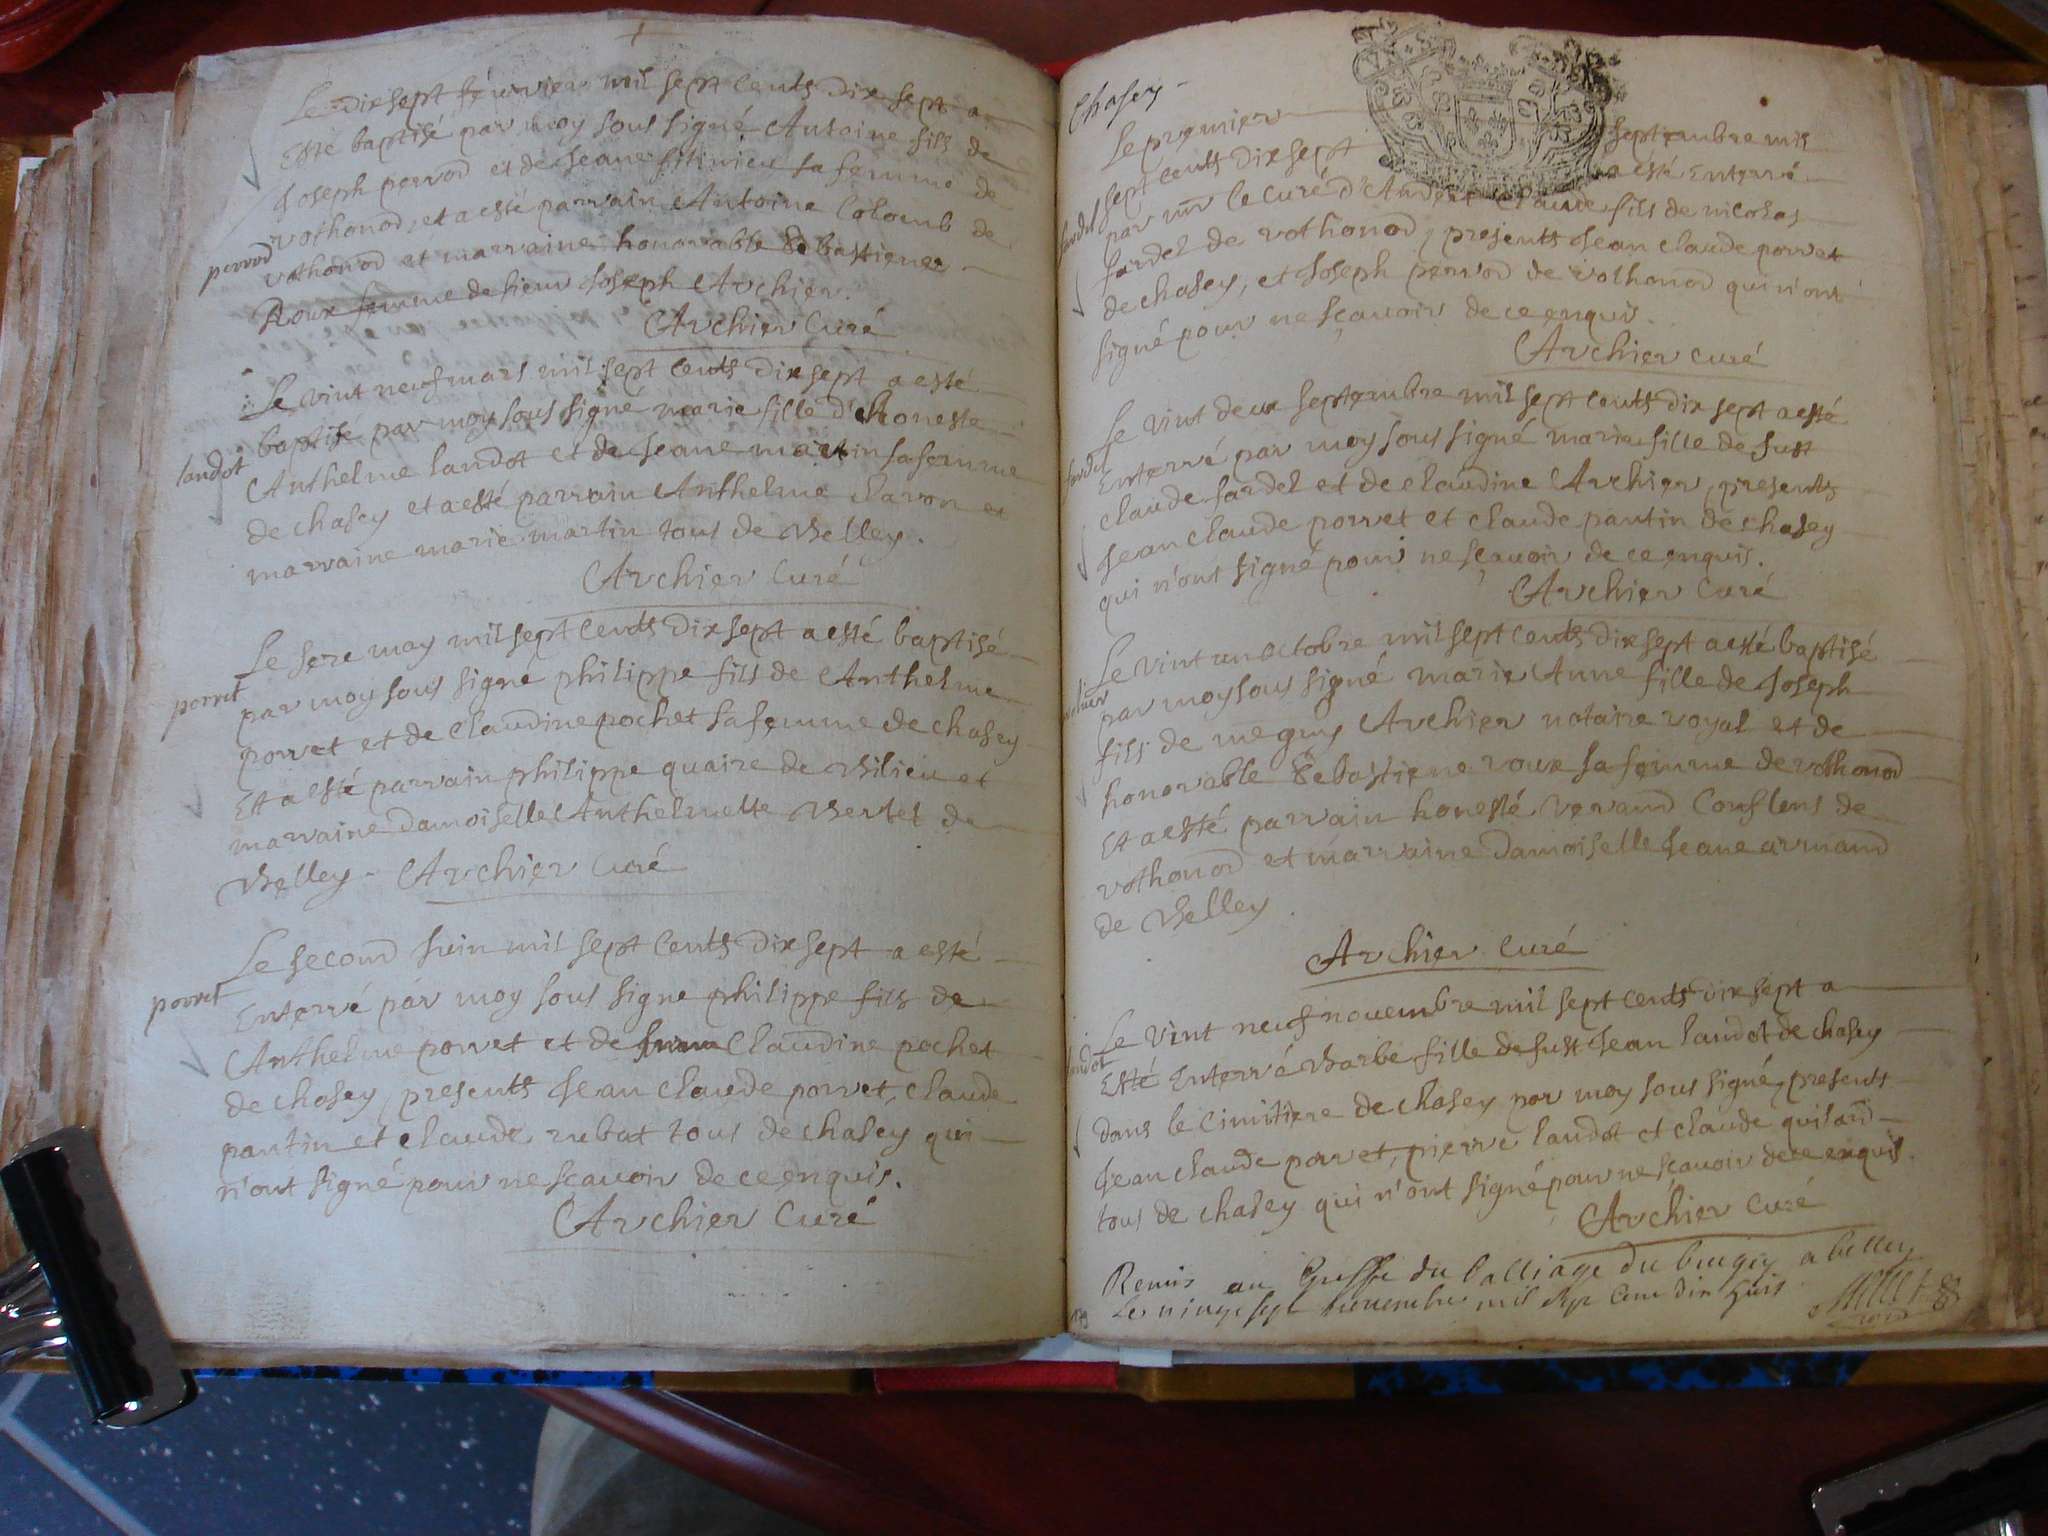 Le dix sept février mil sept cents dix sept a
Esté baptisé par moy sous signé Antoine fils de
Joseph perrod et de Jeane sa femme de
vothonod, et a esté parrain Antoine Colomb de
perrod
vothonod et marraine honorable Sebastiene
Roux femme de sieur Joseph Archier.
Archier Curé
Le vint neuf mars mil sept cents dix sept a esté
baptisé par moy sous signé marie fille d'honeste
landot
Anthelme landot et de Jeane martin sa femme
de chasey et a esté parrain Anthelme et
marraine marie martin tous de Belley.
Archier Curé
Le sere may mil sept cents dix sept a esté baptisé
par moy sous signé philippe fils de Anthelme
porret
porret et de Claudine pochet sa femme de chasey
Et a esté parrain philippe quaire de Bilieu et
marraine damoiselle Anthelmette Bertet de
Belley - Archier Curé
Le second Juin mil sept cents dix sept a esté
Enterré par moy sous signe philippe fils de
porret
Anthelme porret et de Claudine pochet
de chasey, presents Jean claude porret, claude
pantin et claude rubat tous de chasey qui
n'ont signé pour ne scavoir de ce enquis.
Archier Curé
Chasey -
Le premier septembre mil
sept cents dix sept a esté Enterré
par mr le curé d'Andert Claude fils de nicolas
fardel
fardel de vothonod, presents Jean claude porret
de chasey, et Joseph perrod de vothonod qui n'ont
signé pour ne sçavoir de ce enquis.
Archier curé
Le vint deux septembre mil sept cents dix sept a esté
Enterré par moy sous signé marie fille de fust
fardel
claude fardel et de claudine Archier, presents
Jean claude porret et claude pantin de chasey
qui n'ont signé pour ne sçavoir de ce enquis.
Archier Curé
Le vint un octobre mil sept cents dix sept a esté baptisé
par moy sous signé marie Anne fille de Joseph
fils de Archier notaire royal et de
honorable Sebastiene roux sa femme de vothonod
Et a esté parrain honesté verand Couslens de
vothonod et marraine damoiselle Jeane armand
de Belley.
Archier Curé
Le vint neuf novembre mil sept cents dix sept a
landot
Esté Enterré Barbe fille de fust Jean landot de chasey
dans le Cimitiere de chasey par moy sous signé, presents
Jean claude porret, pierre landot et claude quilard
tous de chasey qui n'ont signé pour ne sçavoir de ce enquis.
Archier Curé
Remis au Greffe du balliage du bugey a belley
Le novembre mil sept cent dix huit
179